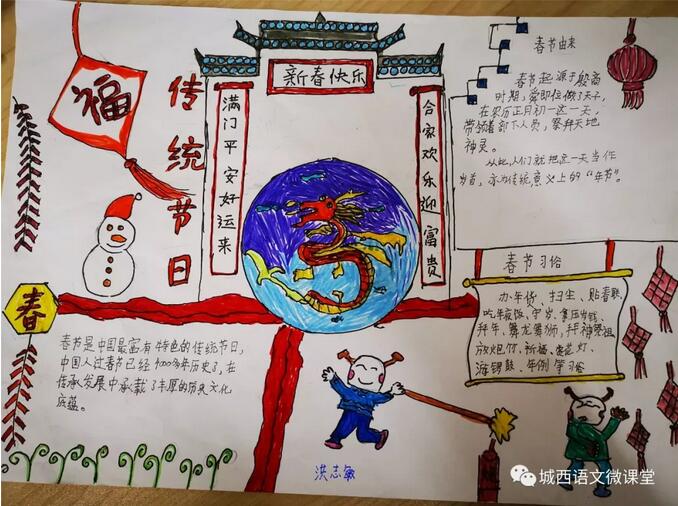 福
传统节日
新春快乐
满门平安好运来
合家欢乐迎富贵
春节由来
春节起源于殷商
时期,舜即位做了天子,
在农历正月初一这一天,
带领着部下人员,祭拜天地
神灵。
从此,人们就把这一天当作
岁首,亦为传统意义上的“年节”。
春
春节是中国最富有特色的传统节日,
中国人过春节已经4000多年历史了,在
传承发展中承载了丰厚的历史文化
底蕴。
春节习俗
办年货、扫尘、贴春联、
吃年夜饭、守岁、拿压岁钱、
拜年、舞龙舞狮、拜神祭祖
放炮竹、祈福、
游锣鼓、年例 习俗
洪志敏
城西语文微课堂